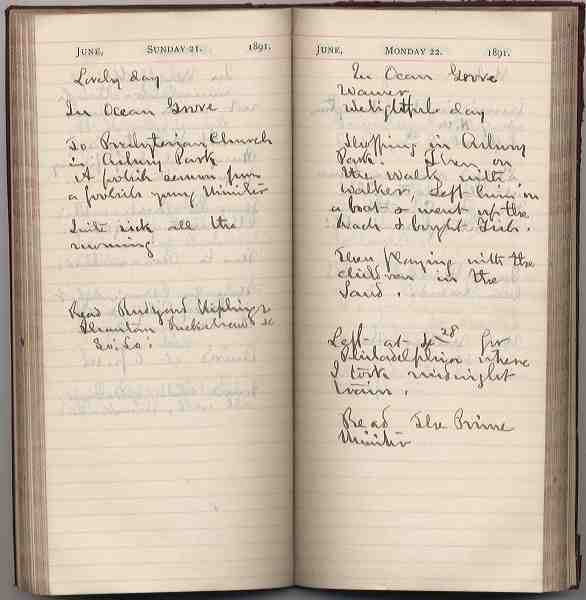 JUNE, SUNDAY 21. 1891.
Lovely day
In Ocean Grove
To Presbyterian Church
in Asbury Park
A foolish sermon from
a foolish young Minister
Quite sick all the
morning
Read Rudyard Kipling's
Phantom Rickshaw &c
So: So:
JUNE, MONDAY 22. 1891.
In Ocean Grove
Warmer
Delightful day
Shopping in Asbury
Park. Then on
the walk with
Walker, Left him in
a boat & went up the
beach & bought Fish.
Then playing with the
children in the
Sand.
Left at 28 for
Philadelphia where
I took midnight
train.
Read The Prime
Minister